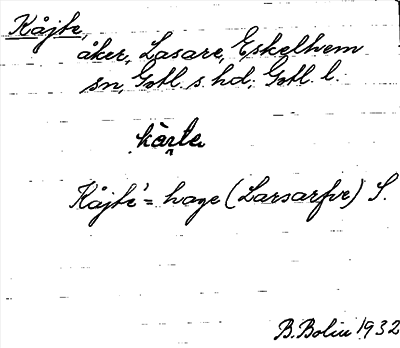 Kåjte,
åker, Lasare, Eskelhem
sn, Gotl. s. hd, Gotl. l.
Kåjte' = hage (Larsarfve) S.
B. Bolin 1932